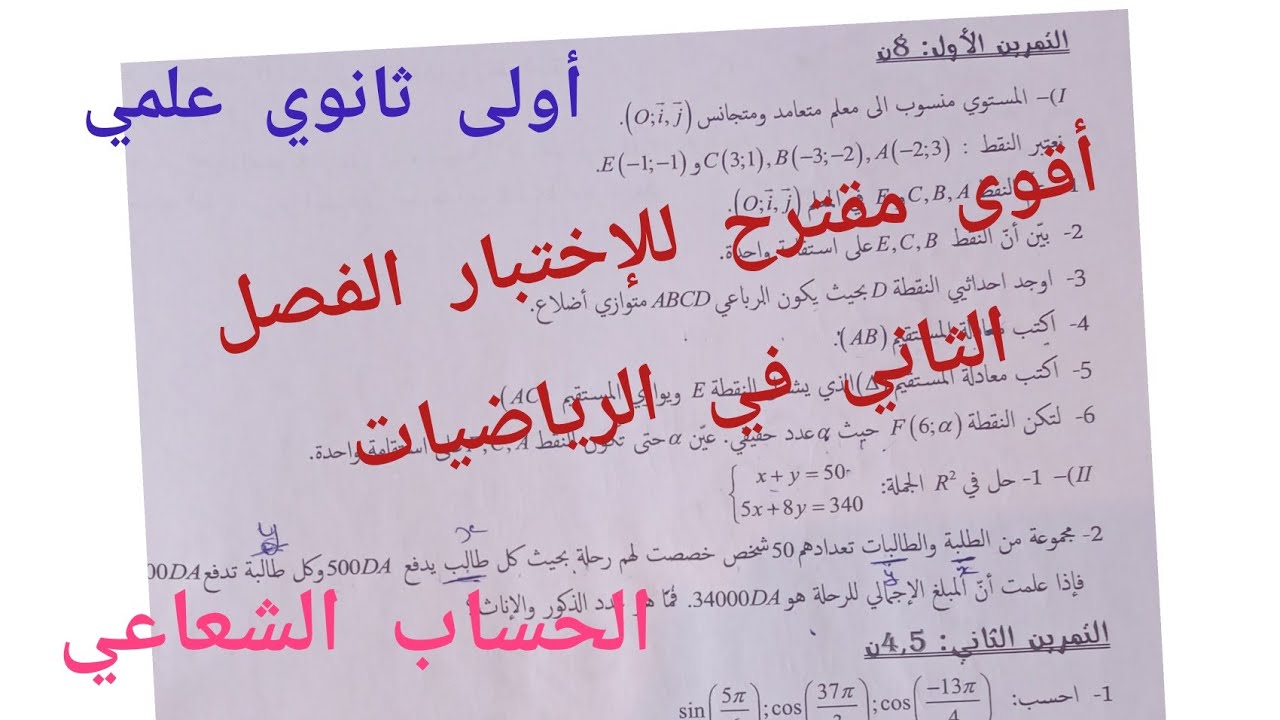 أولى ثانوي علمي
أقوى مقترح للإختبار الفصل
الثاني في الرياضيات
الحساب الشعاعي
التمرين الأول: 8ن
I)– المستوي منسوب الى معلم متعامد ومتجانس (O;i⃗,j⃗).
نعتبر النقط : A(−2;3), B(−3;−2), C(3;1) و E(−1;−1).
النقط A, B, C, E المعلم (O;i⃗,j⃗).
2- بيّن أنّ النقط B, C, E على استقامة واحدة.
3- اوجد احداثيي النقطة D بحيث يكون الرباعي ABCD متوازي أضلاع.
4- اكتب معادلة المستقيم (AB).
5- اكتب معادلة المستقيم (Δ) الذي النقطة E ويوازي المستقيم (AC).
6- لتكن النقطة F(6;α) حيث α عدد حقيقي. عيّن α حتى تكون النقط A, C, استقامة واحدة.
II)– 1- حل في R² الجملة: { x + y = 50
5x + 8y = 340
y x
2- مجموعة من الطلبة والطالبات تعدادهم 50 شخص خصصت لهم رحلة بحيث كل طالب يدفع 500DA وكل طالبة تدفع 00DA
y x
فإذا علمت أنّ المبلغ الإجمالي للرحلة هو 34000DA. فمّا هو عدد الذكور والإناث
التمرين الثاني: 4,5ن
1- احسب: cos(−13π/4); cos(37π/3); sin(5π